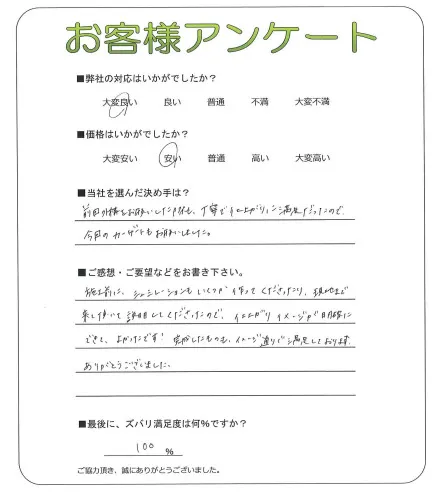 お客様アンケート
■弊社の対応はいかがでしたか？
大変良い　良い　普通　不満　大変不満
■価格はいかがでしたか？
大変安い　安い　普通　高い　大変高い
■当社を選んだ決め手は？
前回外構をお願いした時も、丁寧で仕上がりに満足だったので
今回のカーポートもお願いしました。
■ご感想・ご要望などをお書き下さい。
施工前に、シュミレーションもいくつか作ってくださったり、現地まで
来て頂いて説明してくださったので、仕上がりイメージが明確に
できて、よかったです! 完成したものも、イメージ通りで満足しております
ありがとうございました。
■最後に、ズバリ満足度は何％ですか？
100 ％
ご協力頂き、誠にありがとうございました。